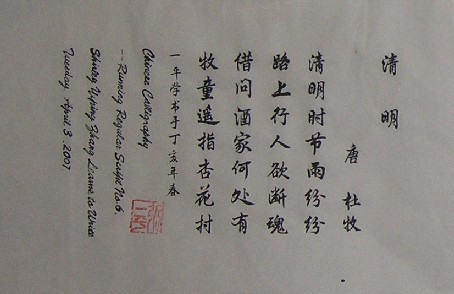 清明
唐 杜牧
清明时节雨纷纷
路上行人欲断魂
借问酒家何处有
牧童遥指杏花村
一年学书于丁亥年春
Chinese Calligraphy
-- Running Regular Script No.6.
Shirley Yiping Zhang Learns to Write
Tuesday, April 3, 2007